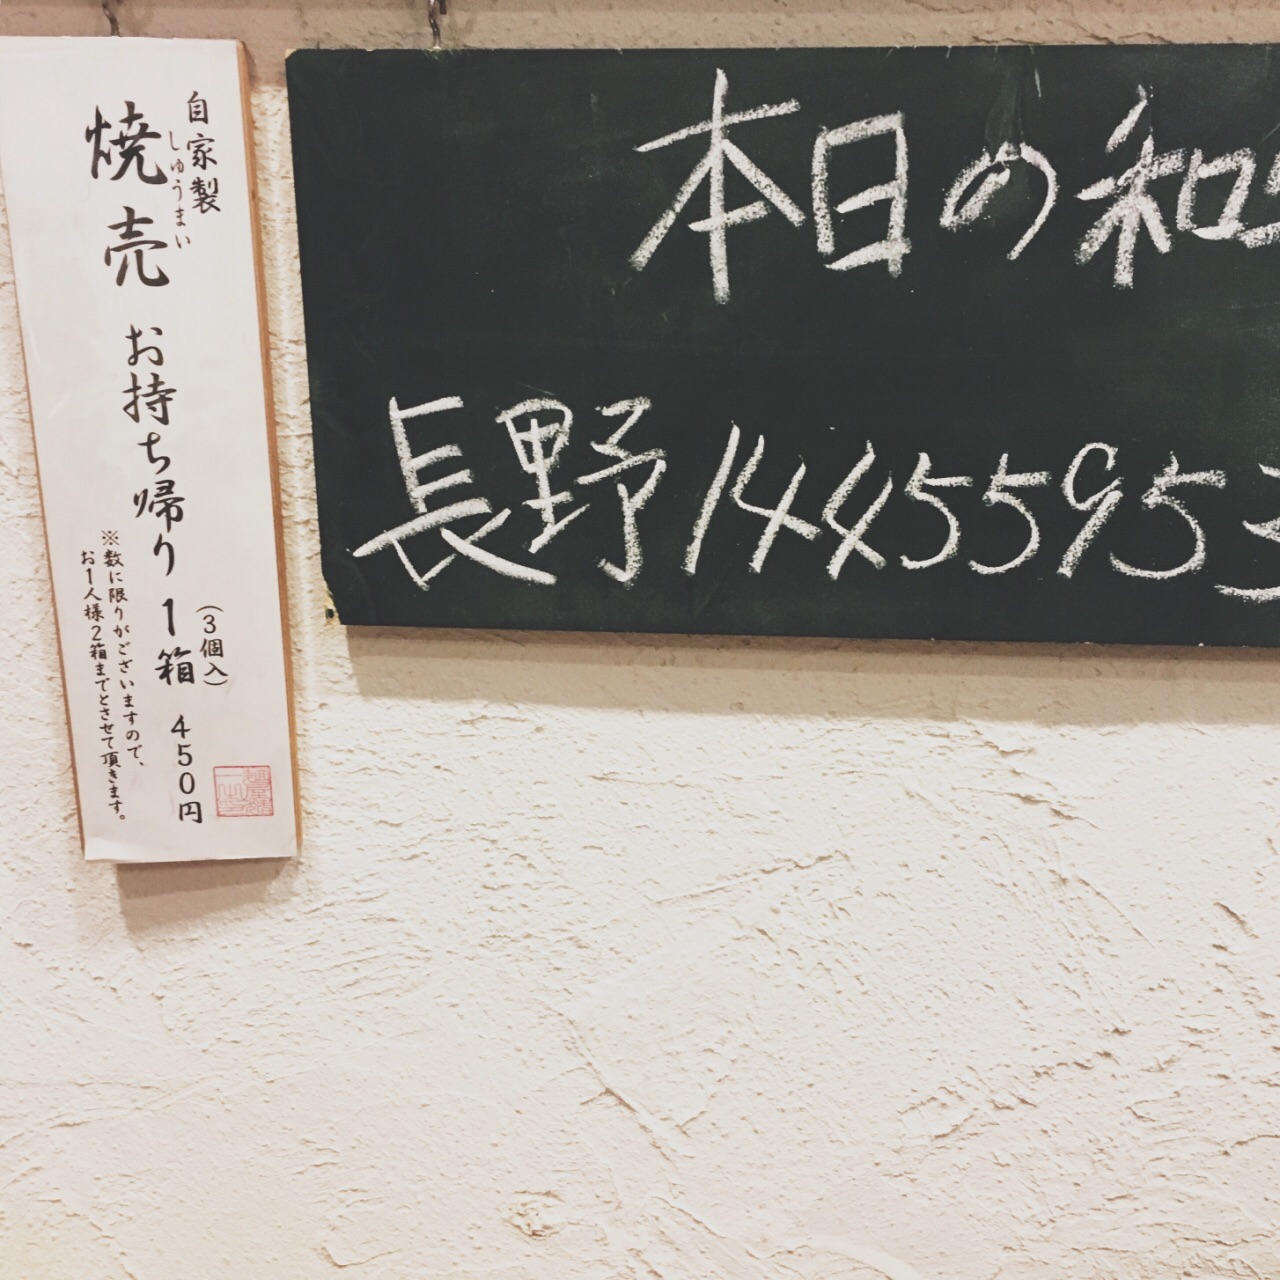 自家製
しゅうまい
焼売 お持ち帰り 1箱 450円
(3個入)
※数に限りがございますので、
お1人様2箱までとさせて頂きます。
本日の和
長野1445595